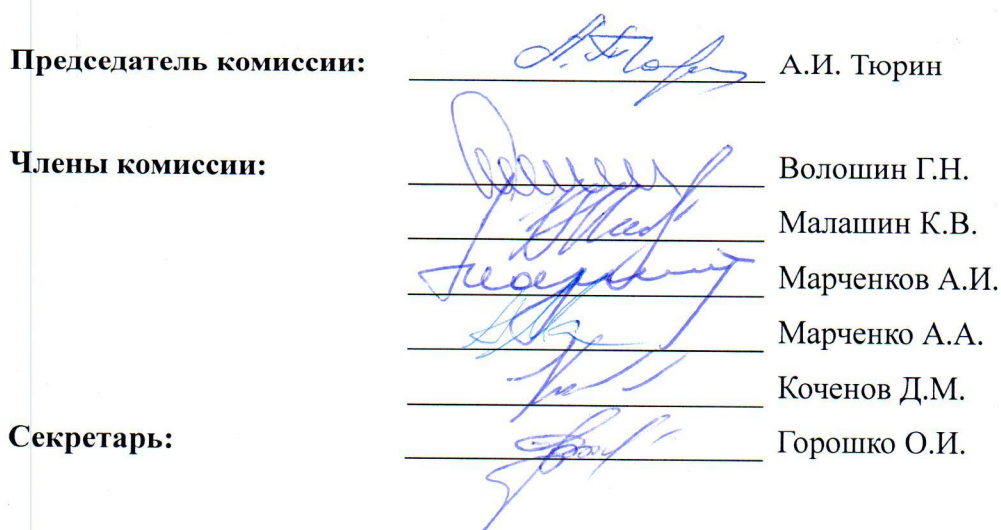 Председатель комиссии: А.И. Тюрин
Члены комиссии: Волошин Г.Н.
Малашин К.В.
Марченков А.И.
Марченко А.А.
Коченов Д.М.
Секретарь: Горошко О.И.